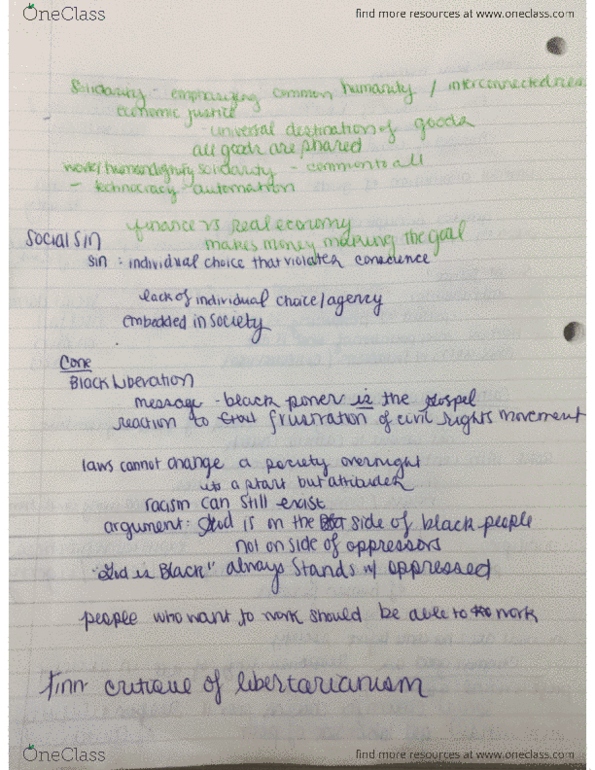 OneClass
find more resources at www.oneclass.com
Solidarity - emphasizing common humanity / interconnectedness
economic justice
- universal destination of goods
all goods are shared
work/human dignity solidarity - common to all
- technocracy - automation
finance vs real economy
social sin
makes money making the goal
sin : individual choice that violates conscience
lack of individual choice/agency
embedded in society
Cone
Black Liberation
message - black power is the gospel
reaction to frustration of civil rights movement
laws cannot change a society overnight
its a start but attitudes
racism can still exist
argument: God is on the side of black people
not on side of oppressors
"God is Black" always stands w/ oppressed
people who want to work should be able to work
Finn critique of libertarianism
OneClass
find more resources at www.oneclass.com